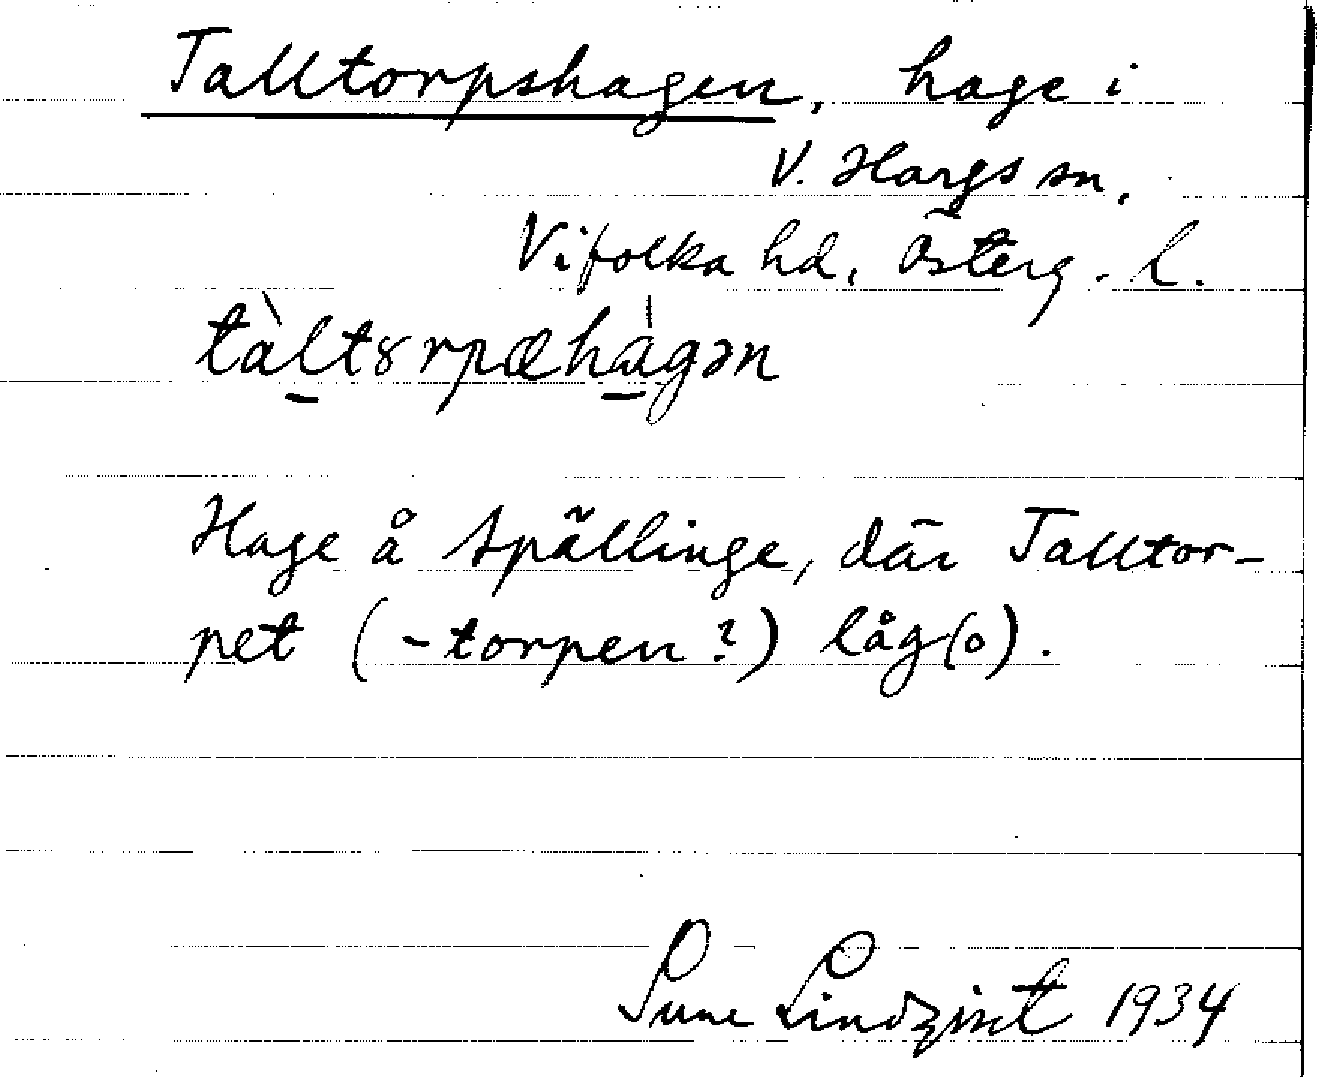 Talltorpshagen, hage i
V. Hargs sn,
Vifolka hd, Österg. l.
tàltȣrpæhàgən
Hage å Spällinge, där Talltor-
pet (-torpen?) låg(o).
Sune Lindqvist 1934